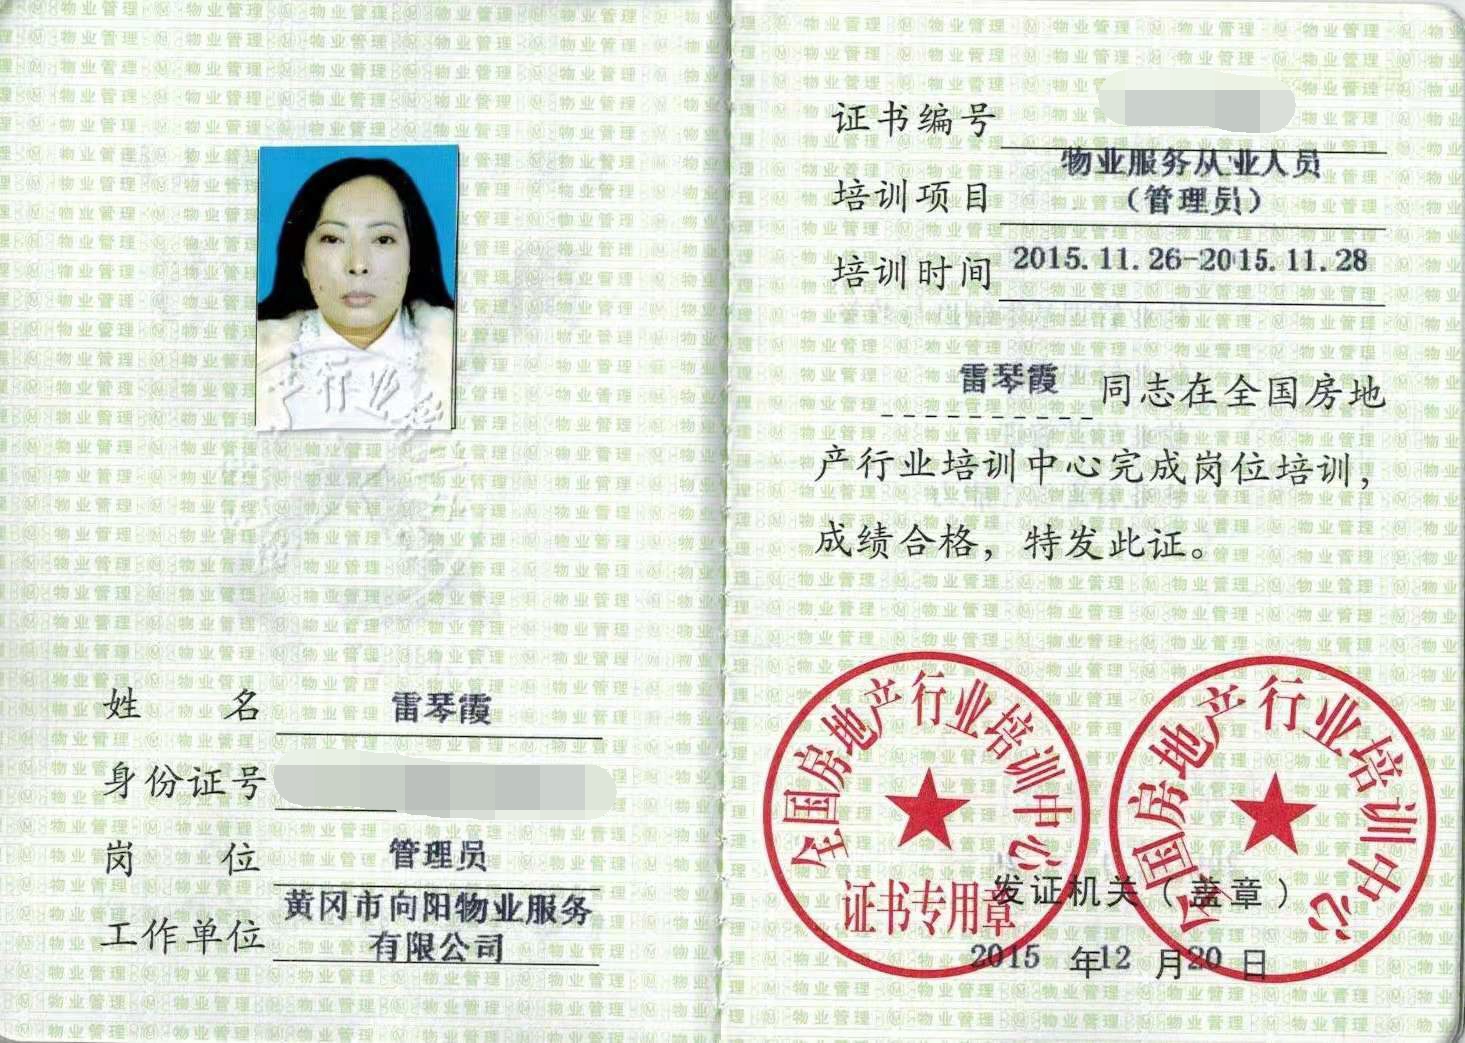 姓 名 雷琴霞
身份证号
岗 位 管理员
工作单位 黄冈市向阳物业服务
有限公司
证书编号
培训项目 物业服务从业人员
（管理员）
培训时间 2015.11.26-2015.11.28
雷琴霞 同志在全国房地
产行业培训中心完成岗位培训，
成绩合格，特发此证。
全国房地产行业培训中心
证书专用章
全国房地产行业培训中心
发证机关（盖章）
2015 年12 月20 日